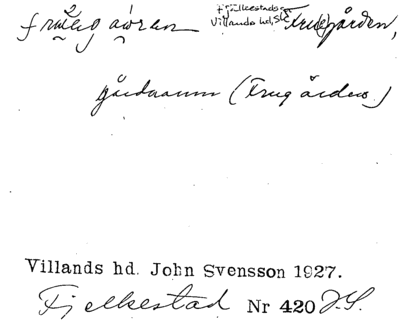 Fjälkestads
Villands hd, Sk. Frugården,
gårdnamn (Frugården.)
Villands hd. John Svensson 1927.
Fjelkestad Nr 420 J.S.